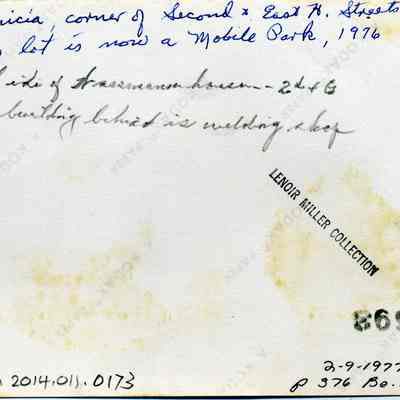 nicia, corner of Second & East H. Streets
lot is now a Mobile Park, 1976
side of house -- 2d & G
building behind is welding shop
LENOIR MILLER COLLECTION
869
2-9-1977
2014.011.0173
p 376 Be.